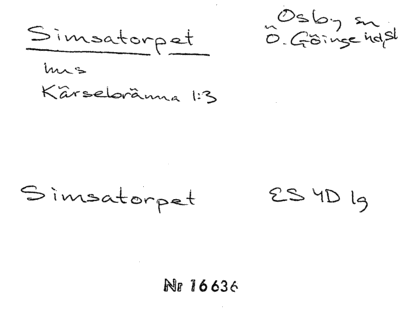 Simsatorpet
Osby sn
Ö. Göinge hd, Sk
hus
Kärsebränna 1:3
Simsatorpet
ES 4D 1g
Nr 16636